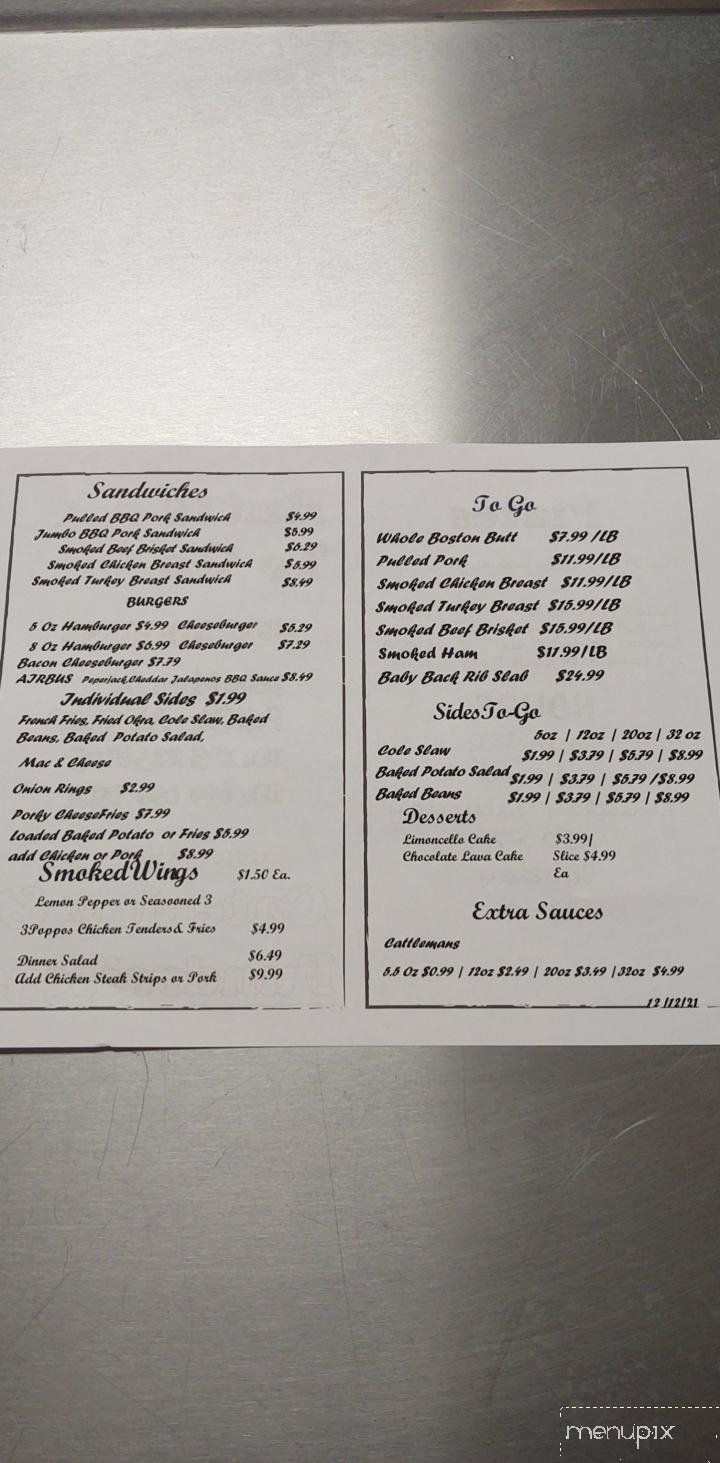 Sandwiches
Pulled BBQ Pork Sandwich $4.99
Jumbo BBQ Pork Sandwich $5.99
Smoked Beef Brisket Sandwich $6.29
Smoked Chicken Breast Sandwich $5.99
Smoked Turkey Breast Sandwich $8.49
BURGERS
5 Oz Hamburger $4.99 Cheeseburger $5.29
8 Oz Hamburger $6.99 Cheseburger $7.29
Bacon Cheeseburger $7.79
AJRBUS Peperjack,Cheddar Jalapenos BBQ Sauce $8.49
Individual Sides $1.99
French Fries, Fried Okra, Cole Slaw, Baked
Beans, Baked Potato Salad,
Mac & Cheese
Onion Rings $2.99
Porky CheeseFries $7.99
Loaded Baked Potato or Fries $5.99
add Chicken or Pork $8.99
Smoked Wings $1.50 Ea.
Lemon Pepper or Seasooned 3
3Poppos Chicken Tenders& Fries $4.99
Dinner Salad $6.49
Add Chicken Steak Strips or Pork $9.99
To Go
Whole Boston Butt $7.99 /LB
Pulled Pork $11.99/LB
Smoked Chicken Breast $11.99/LB
Smoked Turkey Breast $15.99/LB
Smoked Beef Brisket $15.99/LB
Smoked Ham $11.99/LB
Baby Back Rib Slab $24.99
SidesTo-Go
5oz | 12oz | 20oz | 32 oz
Cole Slaw $1.99 | $3.79 | $5.79 | $8.99
Baked Potato Salad $1.99 | $3.79 | $5.79 /$8.99
Baked Beans $1.99 | $3.79 | $5.79 | $8.99
Desserts
Limoncello Cake $3.99|
Chocolate Lava Cake Slice $4.99
Ea
Extra Sauces
Cattlemans
5.5 Oz $0.99 | 12oz $2.49 | 20oz $3.49 |32oz $4.99
12/12/21
menupix